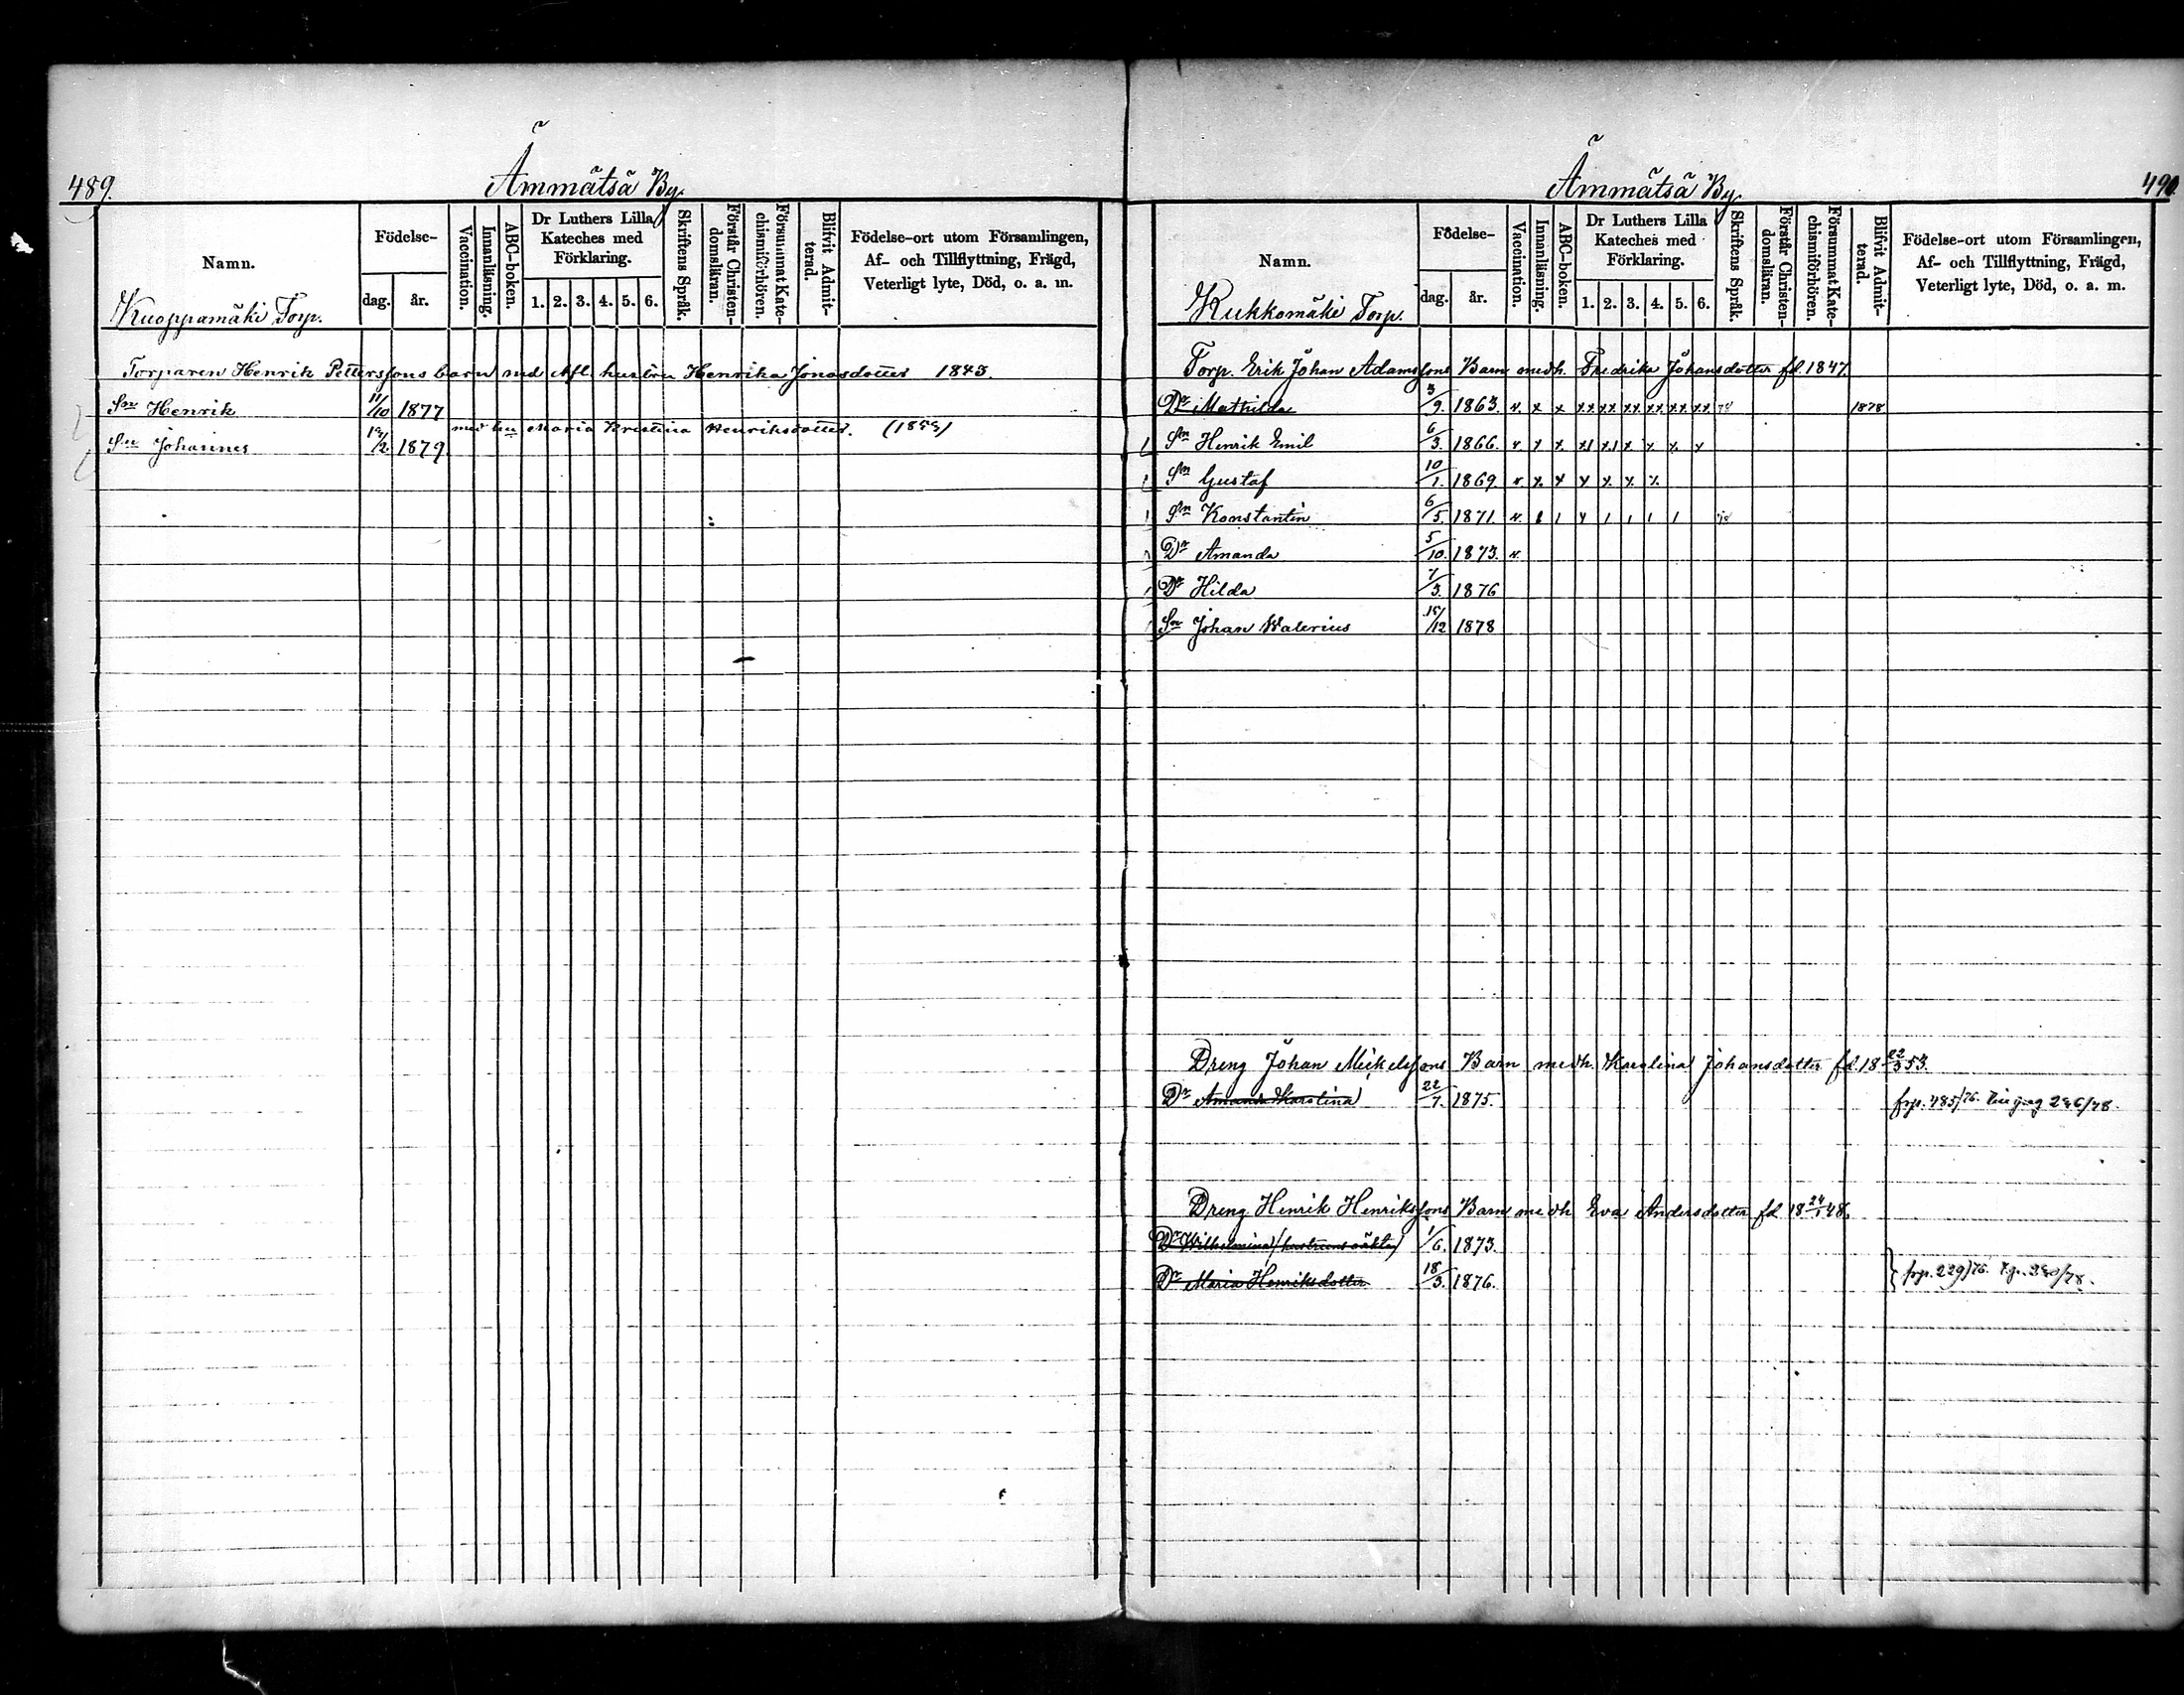 489.
Ämmätsä By.
Namn.
Födelse-
dag.
år.
Vaccination.
Innanläsning.
ABC-boken.
Dr Luthers Lilla Kateches med Förklaring.
1. 2. 3. 4. 5. 6.
Skriftens Språk.
Förstår Christendomsläran.
Försummat Katechismiförhören.
Blifvit Admitterad.
Födelse-ort utom Församlingen,
Af- och Tillflyttning, Frägd,
Veterligt lyte, Död, o. a. m.
Kuoppamäki Torp.
Torparen Henrik Pettersons barn med Afl. hustru Henrika Jonasdotter 1843.
Sn Henrik 11/10 1877
med hu Maria Kristina Henriksdotter.
Sn Johannes 1879
490
Ämmätsä By.
Namn.
Födelse-
dag.
år.
Vaccination.
Innanläsning.
ABC-boken.
Dr Luthers Lilla Kateches med Förklaring.
1. 2. 3. 4. 5. 6.
Skriftens Språk.
Förstår Christendomsläran.
Försummat Katechismiförhören.
Blifvit Admitterad.
Födelse-ort utom Församlingen,
Af- och Tillflyttning, Frägd,
Veterligt lyte, Död, o. a. m.
Kukkomäki Torp.
Torp. Erik Johan Adamssons Barn medh. Fredrika Johansdotter fd. 1847.
Dr Mathilda 3/9. 1863. v. x x xx xx xx xx xx xx 1878
Sn Henrik Emil 6/3. 1866. v. x x. x1 x1 x. x. x. x
Sn Gustaf 10/1. 1869 v. x. x x x. x. x.
Sn Konstantin 6/5. 1871. v. 1 1 x 1 1 1 1
Dr Amanda 5/10. 1873. v.
Dr Hilda 1/3. 1876
Sn Johan Walerius 15/12 1878
Dreng Johan Mickelssons Barn medh. Karolina Johansdotter fd. 18 22/3 53.
Dr Amanda Karolina 22/7. 1875. frp. 485/76.
Dreng Henrik Henrikssons Barn medh Eva Andersdotter fd 18 24/1 48.
Dr Wilhelmina (hustruns oäkta) 1/6. 1873.
Dr Maria Henriksdotter 18/3. 1876. frp. 229/76.